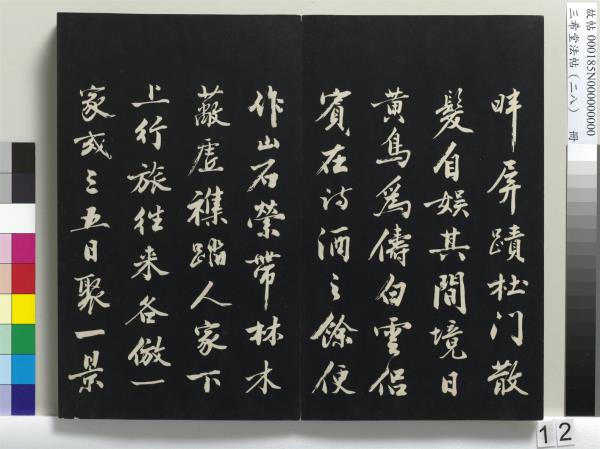 畔屏蹟杜门散
髮自娱其間境日
黄鳥爲儔白雲侣
賓在诗酒之餘便
作山石縈帶林木
蔽虗襍踏人家下
上行旅往来各倣一
家或三五日聚一景
故帖 000185N000000000
三希堂法帖（二八） 冊
12